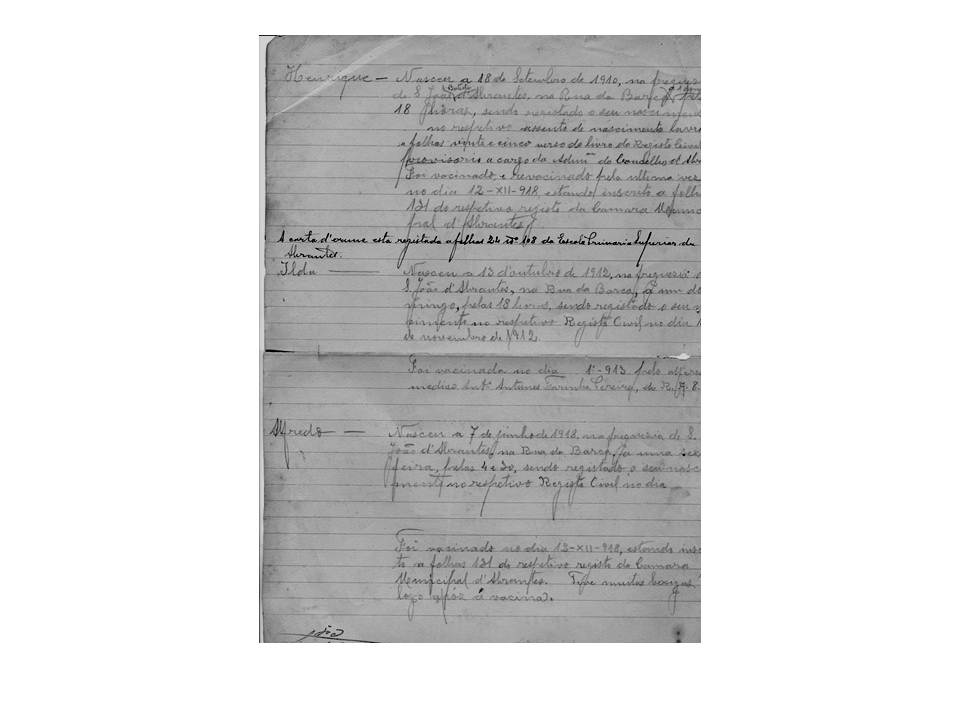 Henrique — Nasceu a 18 de Setembro de 1910, na fregues
de S. João d'Abrantes, na Rua da Barca,
18 horas, sendo registado o seu nascimen
no respetivo assento de nascimento lavra
a folhas vinte e cinco verso do livro do Registo Civil
provisorio a cargo da Admⁿ do Concelho d'Abr
Foi vacinado e revacinado pela ultima vez
no dia 12-XII-918, estando inscrito a folh
131 do respetivo registo da Camara Munic
pal d'Abrantes.
A carta d'exame esta registada a folhas 24 nº 108 da Escola Primaria Superior de
Abrantes.
Ilda — Nasceu a 13 d'outubro de 1912, na freguesia
S. João d'Abrantes, na Rua da Barca, a um do
mingo, pelas 18 horas, sendo registado o seu
cimento no respetivo Registo Civil no dia
de novembro de 1912.
Foi vacinada no dia 1º-913 pelo
medico Antº Antunes Farinha Pereira, de R. A. 8.
Alfredo — Nasceu a 7 de junho de 1918, na freguesia de S.
João d'Abrantes, na Rua da Barca, a uma
feira, pelas 4 e 30, sendo registado o seu nasc
mento no respetivo Registo Civil no dia
Foi vacinado no dia 13-XII-918, estando insc
to a folhas 131 do respetivo registo da Camara
Municipal d'Abrantes. Teve muitas
logo após á vacina.